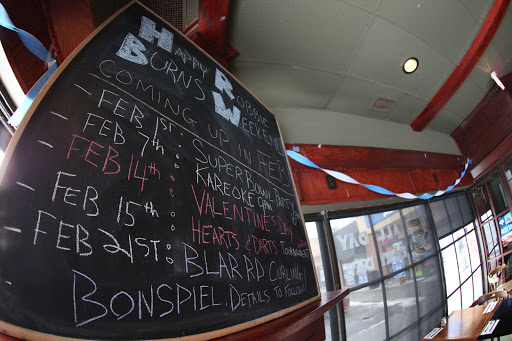 Happy Robbie
Burns Weekend
COMING UP IN FEB
- FEB 1ST: SUPERBOWL PARTY
- FEB 7th: KAREOKE 9pm
- FEB 14th: VALENTINE'S DAY
- FEB 15th: HEARTS & DARTS TOURNAMENT
- FEB 21ST: BLARRD CURLING
BONSPIEL. DETAILS TO FOLLOW!